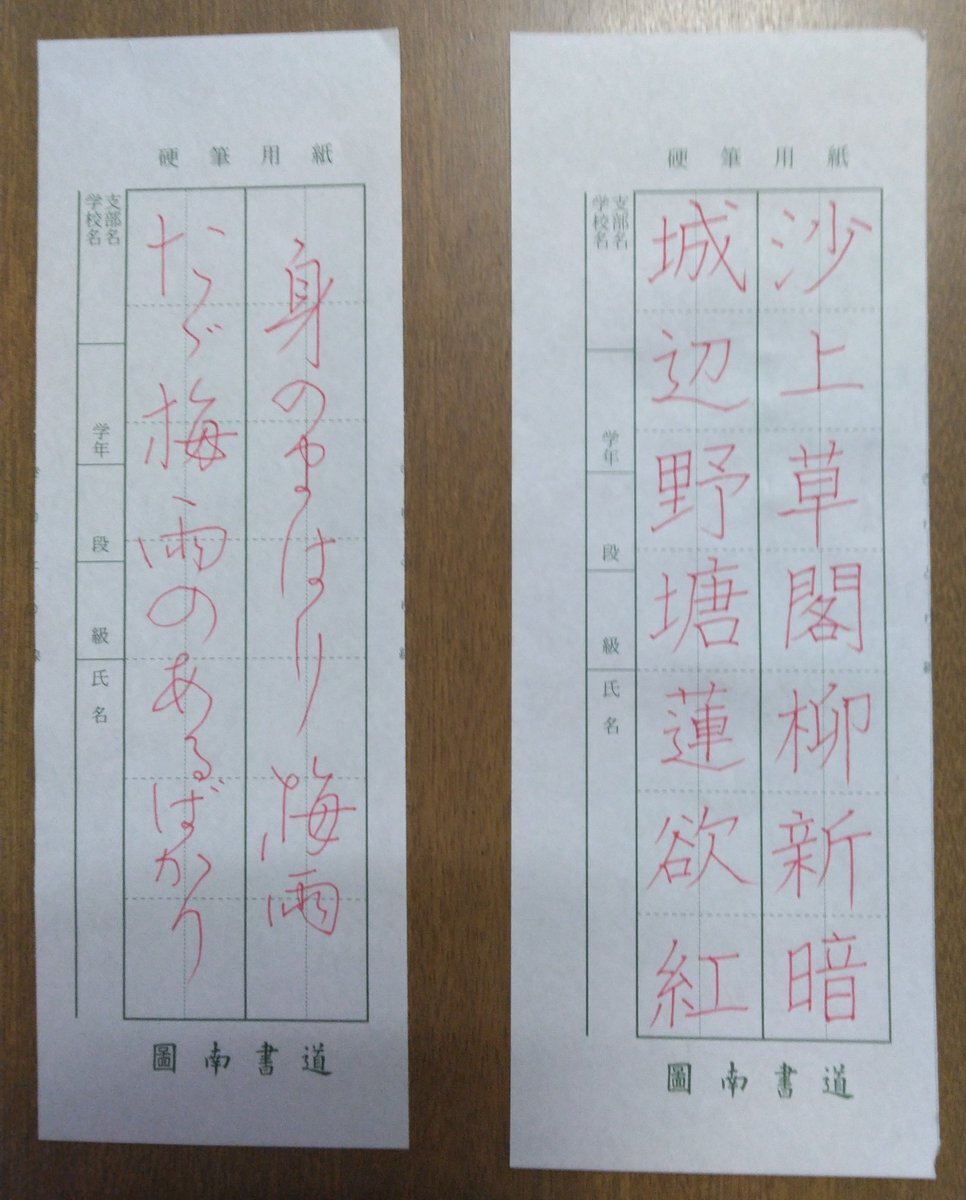 硬筆用紙
沙上草閣柳新暗
城辺野塘蓮欲紅
支部名
学校名
学年
段
級
氏名
圖南書道
硬筆用紙
身のまはり梅雨
たゞ梅雨のあるばかり
支部名
学校名
学年
段
級
氏名
圖南書道